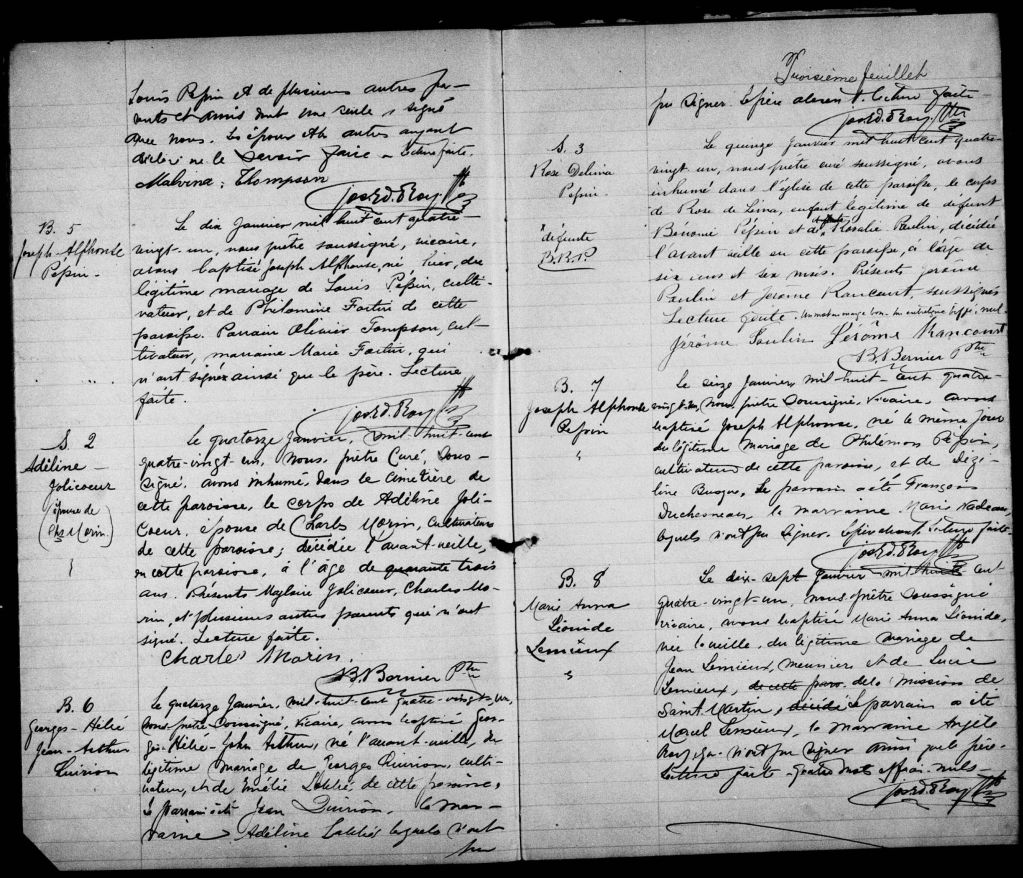 Louis Pepin et de plusieurs autres pa-
rents et amis dont une seule a signé
avec nous. Les époux et les autres ayant
déclaré ne le savoir faire. Lecture faite.
Malvina Thompson
Jos. Ed. Roy, Ptre
B. 5
Joseph-Alphonse
Pépin.
Le dix Janvier mil huit cent quatre-
vingt-un, nous prêtre soussigné, vicaire,
avons baptisé Joseph Alphonse, né hier, du
légitime mariage de Louis Pépin, culti-
vateur, et de Philomène Fortin de cette
paroisse. Parrain Olivier Tompson, cul-
tivateur, marraine Marie Fortin, qui
n'ont signé ainsi que le père. Lecture
faite.
Jos. Ed. Roy, Ptre
S. 2
Adéline
Jolicoeur
épouse de
(Chs Morin.)
Le quatorze Janvier, mil-huit-cent
quatre-vingt-un, nous, prêtre Curé, sous-
signé, avons inhumé, dans le cimetière de
cette paroisse, le corps de Adéline Joli-
coeur, épouse de Charles Morin, cultivateur
de cette paroisse; décédée l'avant-veille,
en cette paroisse, à l'âge de quarante trois
ans. Présents Jolicoeur, Charles Mo-
rin, et plusieurs autres parents qui n'ont
signé. Lecture faite.
Charles Morin.
B. Bernier Ptre
B. 6
Georges-Hélie
Jean-Arthur
Quirion
Le quatorze Janvier, mil-huit-cent quatre-vingt-un,
nous prêtre soussigné, vicaire, avons baptisé Geor-
ges-Hélie-John Arthur, né l'avant-veille, du
légitime mariage de Georges Quirion, culti-
vateur, et de Emélie Labbé, de cette paroisse.
Le parrain a été Jean Quirion, la mar-
raine Adéline Labbé lesquels n'ont
pu
Troisième feuillet
pu signer. Le père absent. Lecture faite.
Jos. Ed. Roy, Ptre
S. 3
Rose Delima
Pépin.
x défunte
B.B.P.
Le quinze Janvier mil huit cent quatre-
vingt un, nous prêtre curé soussigné, avons
inhumé dans l'église de cette paroisse, le corps
de Rose de Lima, enfant légitime de défunt
Benomi Pépin et de Rosalie Poulin, décédée
l'avant veille en cette paroisse, à l'âge de
six ans et six mois. Présents Jérôme
Poulin et Jérôme Rancourt, soussignés
Lecture faite. Un mot en marge bon. biffé, nul.
Jérôme Poulin Jérôme Rancourt
B. Bernier Ptre
B. 7
Joseph Alphonse
Pépin
Le seize Janvier, mil-huit-cent quatre-
vingt-un, nous, prêtre soussigné, vicaire, avons
baptisé Joseph Alphonse, né le même jour
du légitime mariage de Philémon Pépin,
cultivateur de cette paroisse, et de
Busque. Le parrain a été François
Duchesneau, la marraine Marie Nadeau,
lesquels n'ont pu signer. Le père absent. Lecture faite.
Jos. Ed. Roy, Ptre
B. 8
Marie Anna
Léonide
Lemieux
Le dix-sept Janvier mil huit cent
quatre-vingt-un, nous prêtre soussigné
vicaire, avons baptisé Marie Anna Léonide,
née la veille, du légitime mariage de
Jean Lemieux, meunier, et de Lucie
Lemieux, de cette paro. de la mission de
Saint Martin, décédé Le parrain a été
Morel Lessieux, la marraine Angèle
n'ont pu signer ainsi que le père.
Lecture faite. Quatre mots nuls.
Jos. Ed. Roy Ptre